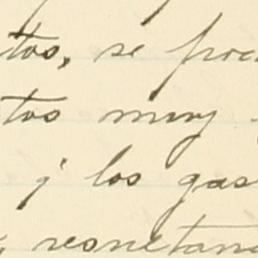 tos, se pro
tos muy
y los gas
, resnetan